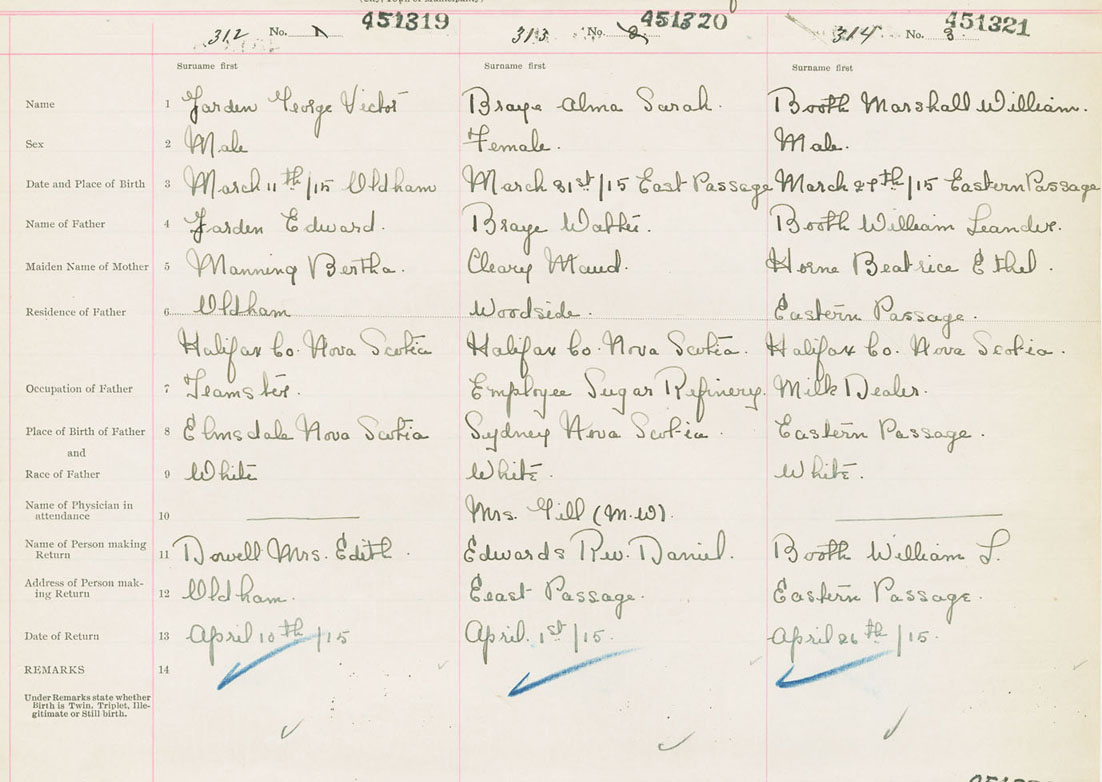 451319 451320 451321
312 No. 1 313 No. 2 314 No. 3
Surname first Surname first Surname first
Name 1 Jarden George Victor Braye Alma Sarah. Booth Marshall William.
Sex 2 Male Female. Male.
Date and Place of Birth 3 March 11th/15 Oldham March 31st/15 East Passage March 29th/15 Eastern Passage
Name of Father 4 Jarden Edward. Braye Walter. Booth William Leander.
Maiden Name of Mother 5 Manning Bertha. Cleary Maud. Horne Beatrice Ethel.
Residence of Father 6 Oldham Woodside. Eastern Passage.
Halifax Co. Nova Scotia Halifax Co. Nova Scotia. Halifax Co. Nova Scotia.
Occupation of Father 7 Teamster. Employee Sugar Refinery. Milk Dealer.
Place of Birth of Father 8 Elmsdale Nova Scotia Sydney Nova Scotia. Eastern Passage.
and
Race of Father 9 White White. White.
Name of Physician in
attendance 10 Mrs. Gill (M.W).
Name of Person making
Return 11 Dowell Mrs. Edith. Edwards Rev. Daniel. Booth William L.
Address of Person mak-
ing Return 12 Oldham. Eeast Passage. Eastern Passage.
Date of Return 13 April 10th/15 April. 1st/15. April 26th/15.
REMARKS 14
Under Remarks state whether
Birth is Twin, Triplet, Ille-
gitimate or Still birth.